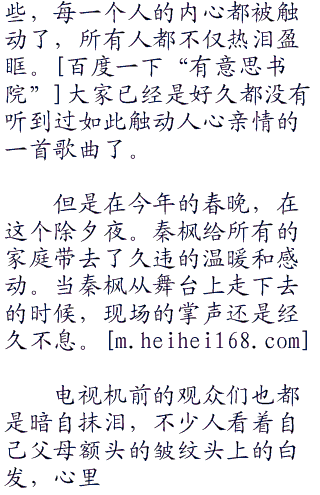 些，每一个人的内心都被触
动了，所有人都不仅热泪盈
眶。[百度一下“有意思书
院”]大家已经是好久都没有
听到过如此触动人心亲情的
一首歌曲了。
但是在今年的春晚，在
这个除夕夜。秦枫给所有的
家庭带去了久违的温暖和感
动。当秦枫从舞台上走下去
的时候，现场的掌声还是经
久不息。[m.heihei168.com]
电视机前的观众们也都
是暗自抹泪，不少人看着自
己父母额头的皱纹头上的白
发，心里